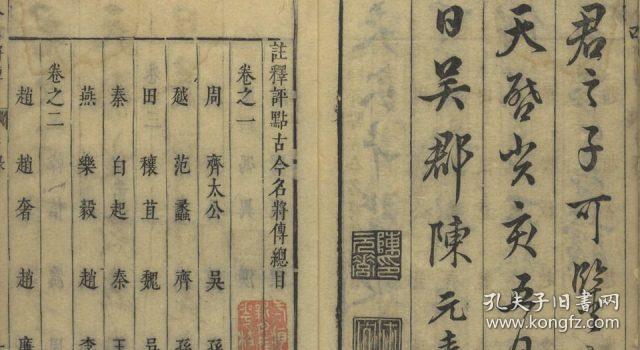 君之子可
天啓癸亥五
日吴郡陳元
註釋評點古今名將傳總目
卷之一
周 齊太公 吳 孫
越 范蠡 齊 孫
田穰苴 魏 吳
秦 白起 秦 王
燕 樂毅 趙 李
卷之二
趙 趙奢 趙 廉
孔夫子旧书网
www.kongfz.com